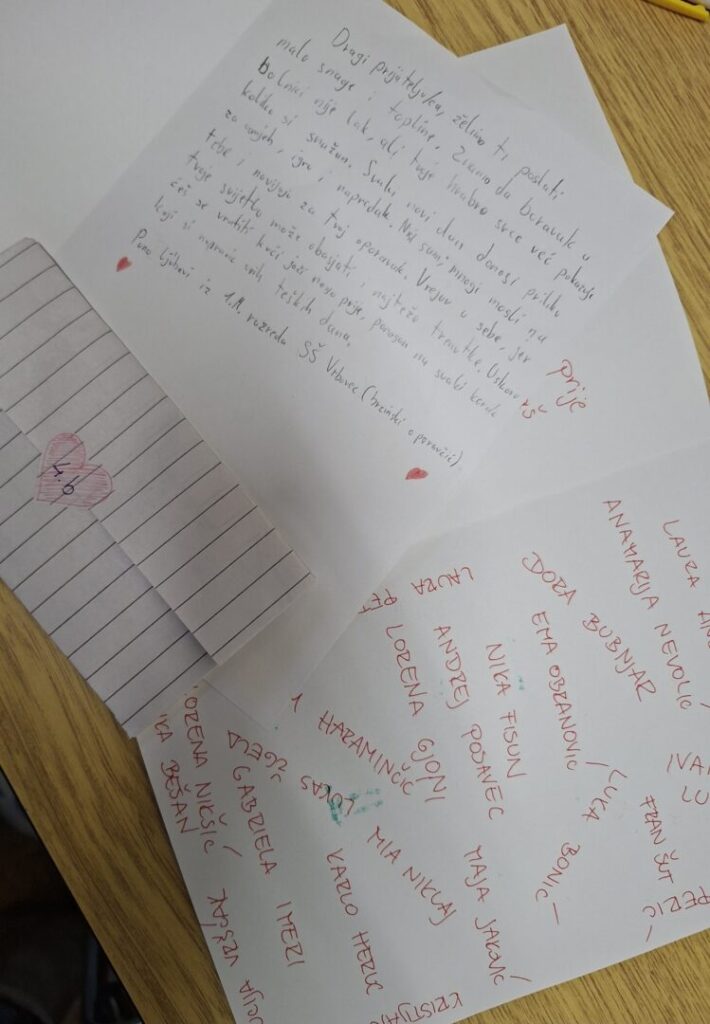 Dragi prijatelju/ca, želimo ti poslati
malo snage i topline. Znamo da boravak u
bolnici nije lak, ali tvoje hrabro srce već pokazuje
koliko si snažan. Svaki novi dan donosi priliku
za osmjeh, igru i napredak. Nisi sam, mnogi na
tebe i navijaju za tvoj oporavak. Vjeruj u sebe, jer
tvoje svijetlo može obasjati i najteže trenutke. Uskoro
ćeš se vratiti kući jači nego prije, ponosan na svaki korak
koji si napravio ovih teških dana.
Puno ljubavi iz 1.M razreda SŠ Vrbovec
prije
rš
4.b
LAURA
ANAMARIJA NEVOLIĆ
DORA BUBNJAR
EMA OBRANOVIĆ
NIKA FISUN
ANDREJ POSAVEC
LAURA
LORENA GJONI
HARAMINČIĆ
LUKA BONIĆ
IVA
LU
FRAN ŠUT
PERIC
LUKAS
GABRIELA IMERI
LORENA NIKŠIĆ
KA BEŠAN
MIA NIKLAJ
KARLO HERUC
MAJA JAKOVIĆ
KRISTIJAN